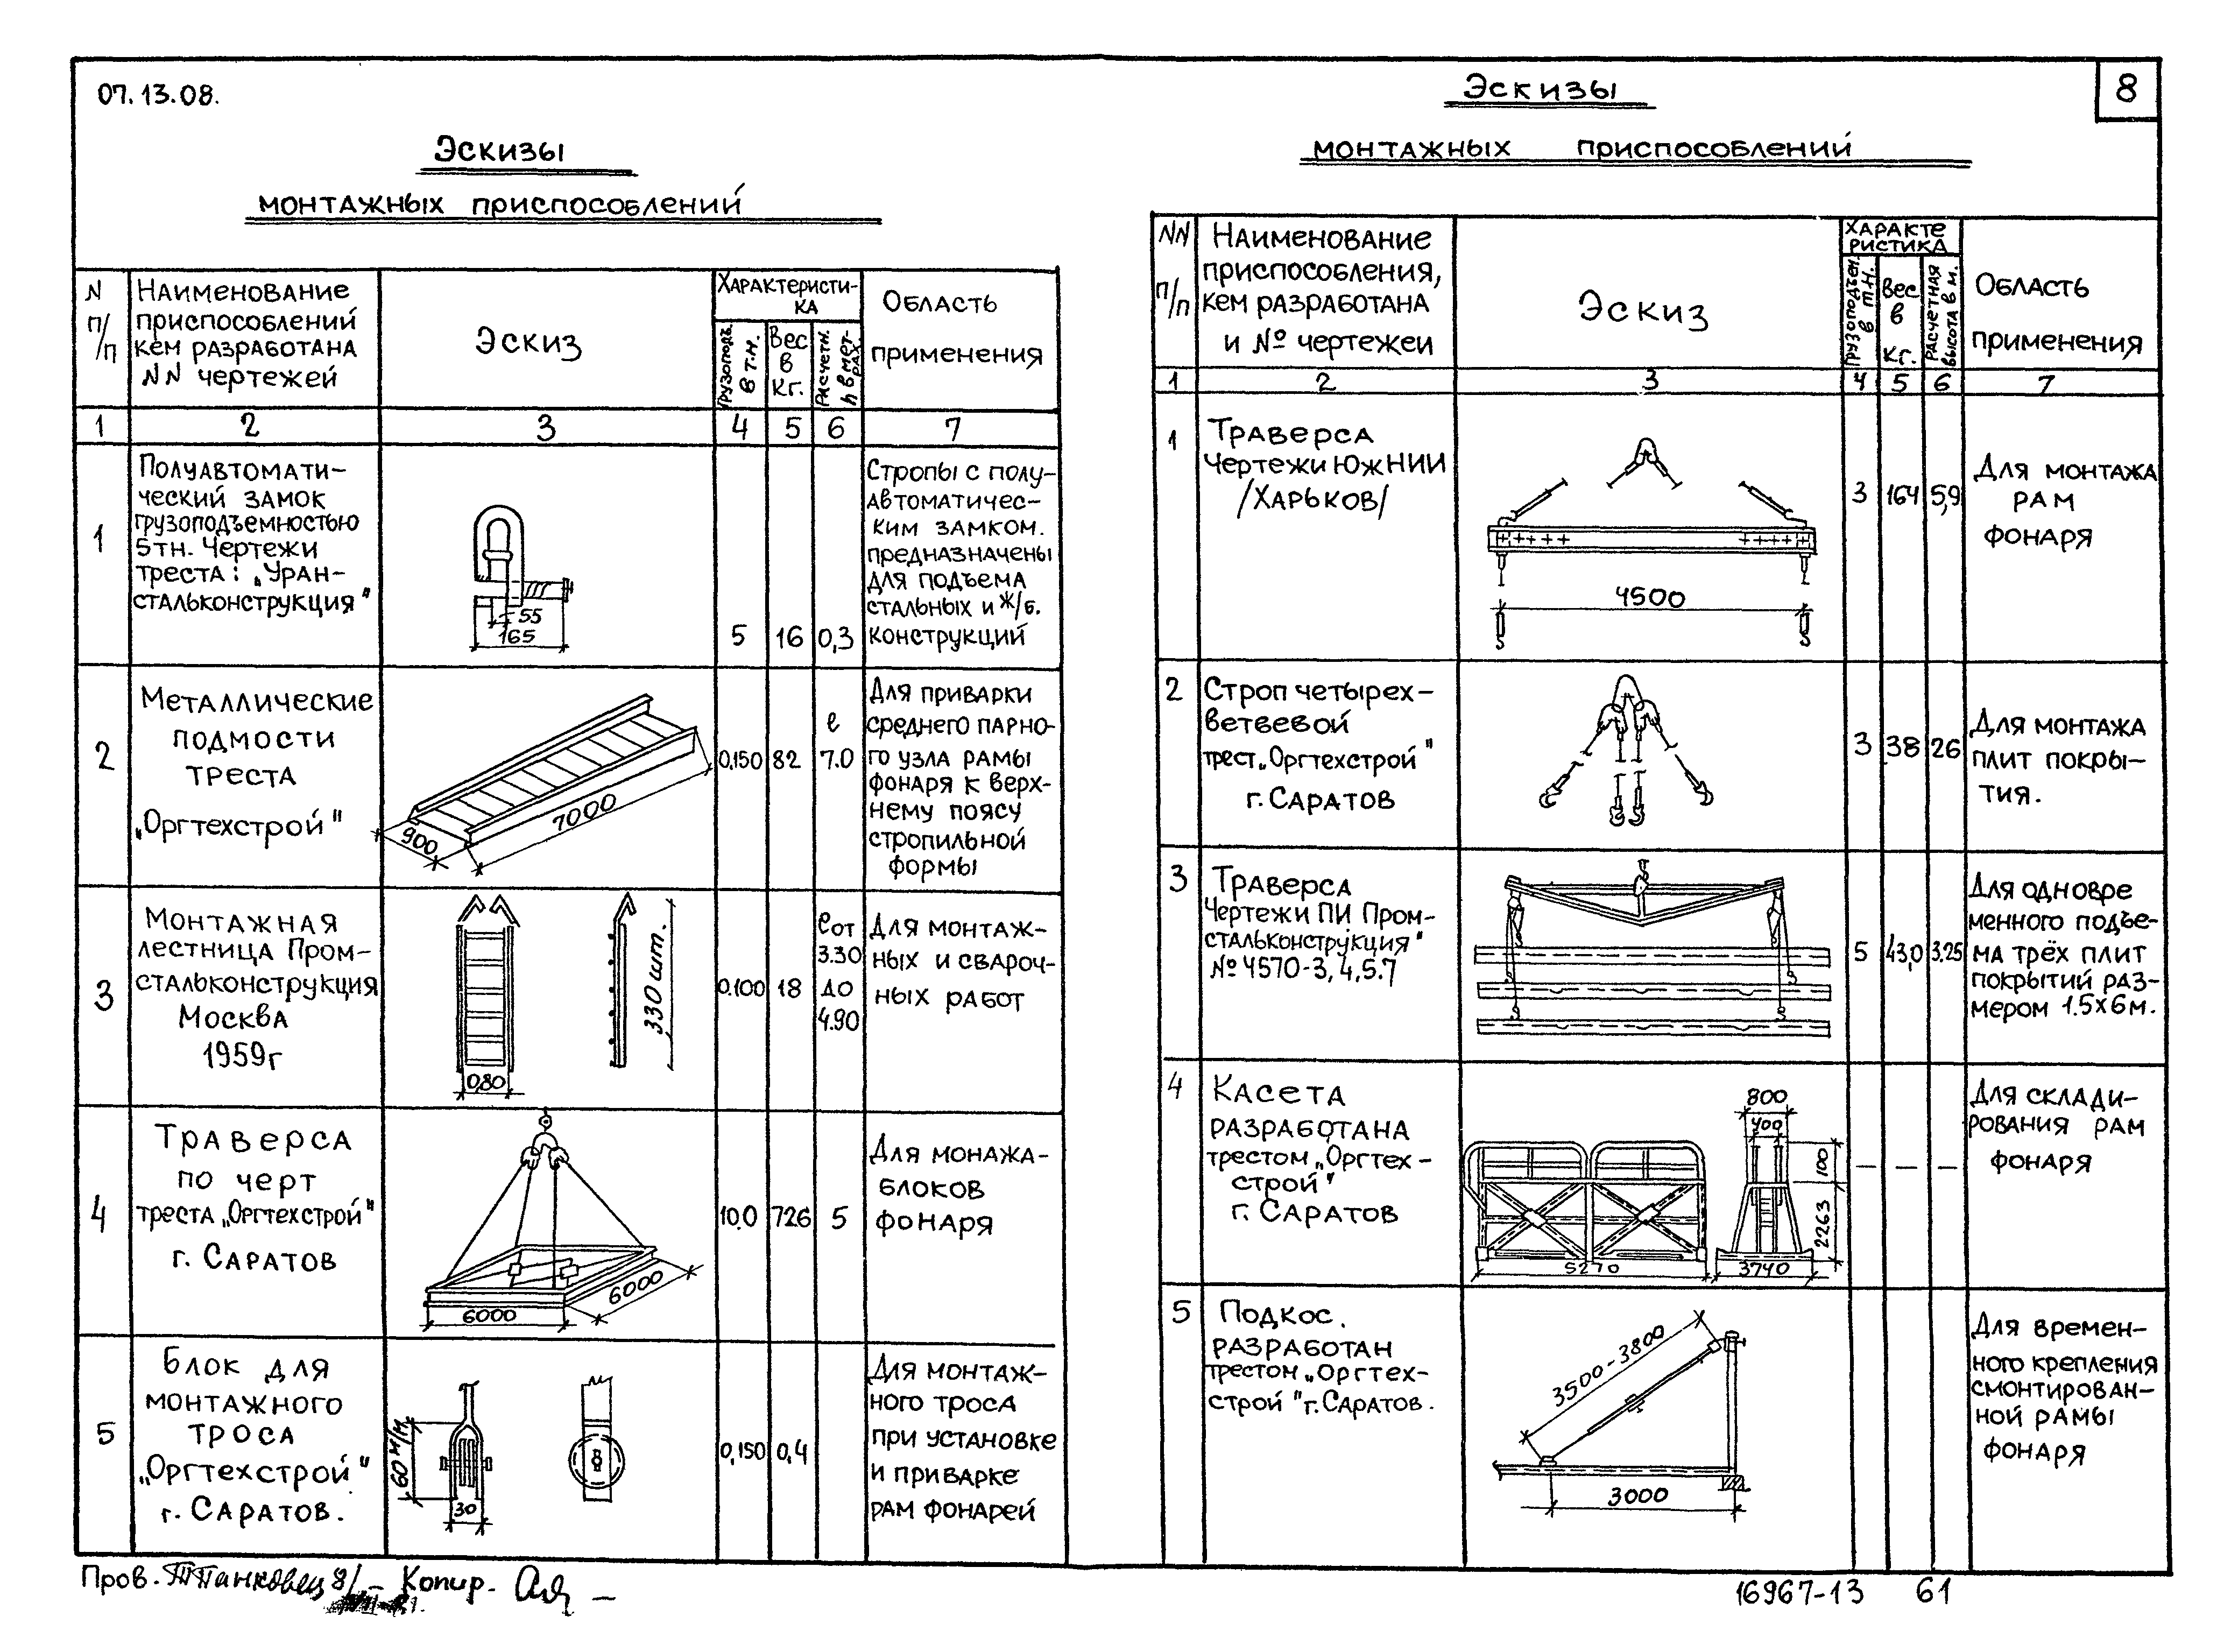 07.13.08.
Эскизы
монтажных приспособлений
N п/п
Наименование
приспособлений
кем разработана
NN чертежей
Эскиз
Характеристи-
ка
Грузоподъ.
в т.н.
Вес
в
кг.
Расчетн.
h в мет-
рах
Область
применения
1 2 3 4 5 6 7
1
Полуавтомати-
ческий замок
грузоподъемностью
5тн. Чертежи
треста: „Уран-
стальконструкция"
55
165
5 16 0,3
Стропы с полу-
автоматичес-
ким замком.
предназначены
для подъема
стальных и ж/б.
конструкций
2
Металлические
подмости
треста
„Оргтехстрой"
900
7000
0,150 82
ℓ
7.0
Для приварки
среднего парно-
го узла рамы
фонаря к верх-
нему поясу
стропильной
формы
3
Монтажная
лестница Пром-
стальконструкция
Москва
1959г
0,80
330 шт.
0.100 18
ℓ от
3.30
до
4.90
Для монтаж-
ных и свароч-
ных работ
4
Траверса
по черт
треста „Оргтехстрой"
г. Саратов
6000
6000
10,0 726 5
Для монажа-
блоков
фонаря
5
Блок для
монтажного
троса
„Оргтехстрой"
г. Саратов.
60 м/м
30
0,150 0,4
Для монтаж-
ного троса
при установке
и приварке
рам фонарей
Пров.
Копир.
8
Эскизы
монтажных приспособлений
NN
п/п
Наименование
приспособления,
кем разработана
и № чертежей
Эскиз
Характе
ристика
Грузоподъем.
в т.н.
Вес
в
кг.
Расчетная
высота в м.
Область
применения
1 2 3 4 5 6 7
1
Траверса
Чертежи ЮжНИИ
/Харьков/
4500
3 164 5,9
Для монтажа
рам
фонаря
2
Строп четырех-
ветвевой
трест „Оргтехстрой"
г. Саратов
3 38 26
Для монтажа
плит покры-
тия.
3
Траверса
Чертежи ПИ Пром-
стальконструкция"
№ 4570-3, 4,5.7
5 43,0 3.25
Для одновре
менного подъе-
ма трёх плит
покрытий раз-
мером 1.5х6м.
4
Касета
разработана
трестом „Оргтех-
строй"
г. Саратов
800
400
100
2263
5270
3740
— — —
Для склади-
рования рам
фонаря
5
Подкос.
разработан
трестом „Оргтех-
строй" г. Саратов.
3500-3800
3000
Для времен-
ного крепления
смонтирован-
ной рамы
фонаря
16967-13 61